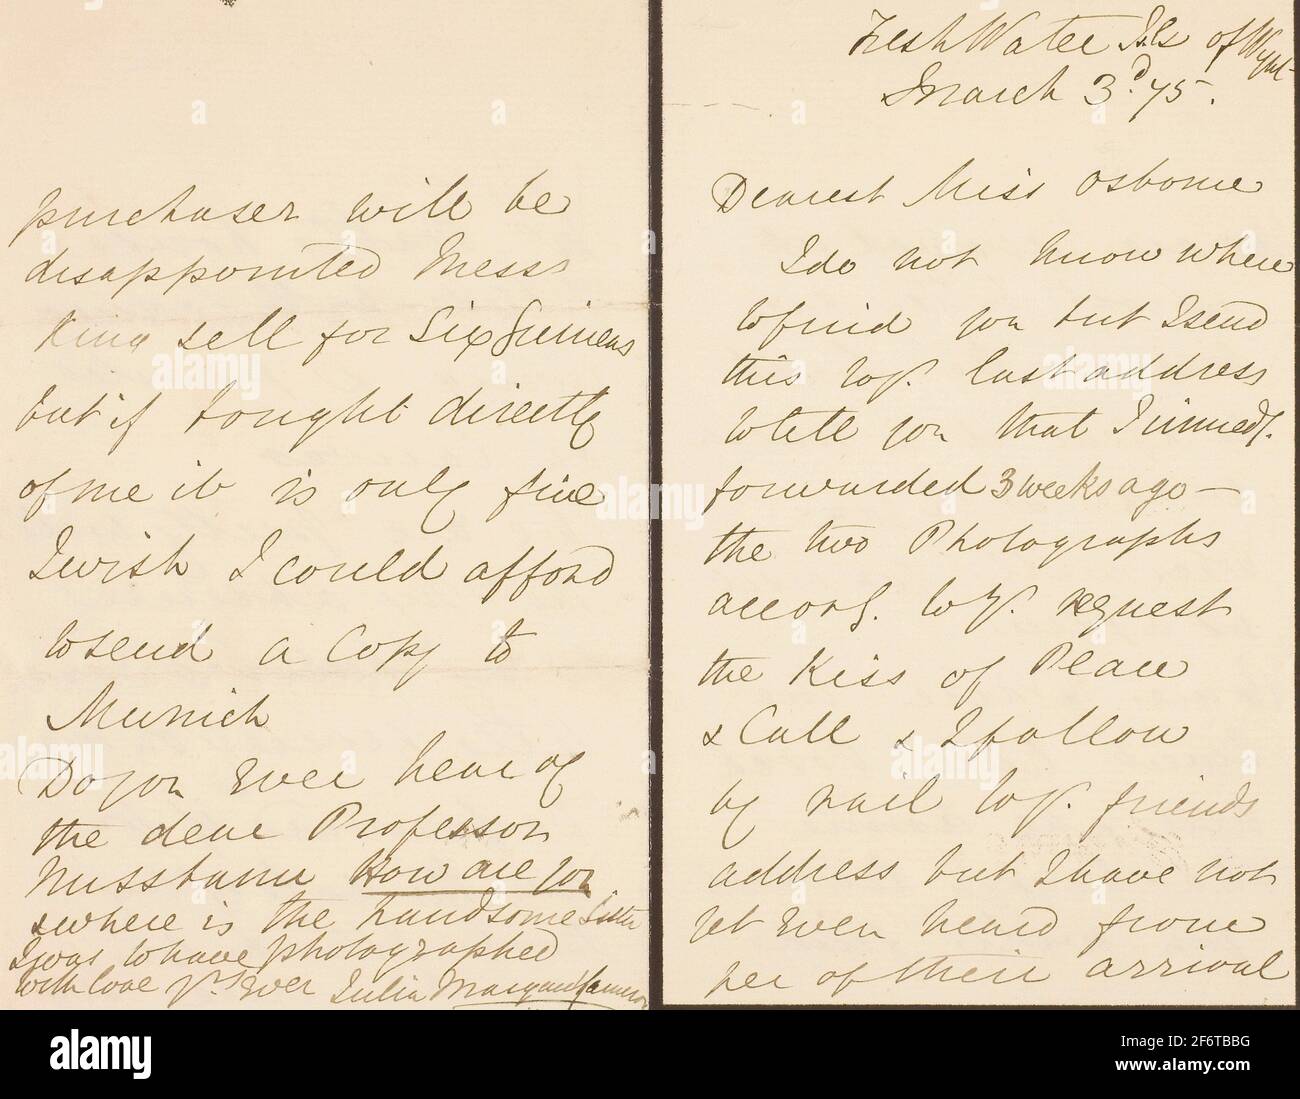 Fresh Water Isle of Wight
March 3d. 75.
Dearest Miss Osborne
I do not know where
to find you but I send
this to yr. last address
to tell you that I immedy.
forwarded 3 weeks ago —
the two Photographs
accordg. to yr. request
the Kiss of Peace
& Call & I follow
by rail to yr. friends
address but I have not
yet even heard from
her of their arrival
purchaser will be
disappointed Messrs
King sell for Six Guineas
but if bought directly
of me it is only five
I wish I could afford
to send a Copy to
Munich
Do you ever hear of
the dear Professor
Nussbaum How are you
& where is the handsome Sister
I was to have photographed
with love yrs. ever Julia Margaret Cameron
alamy
Image ID: 2F6TBBG
www.alamy.com